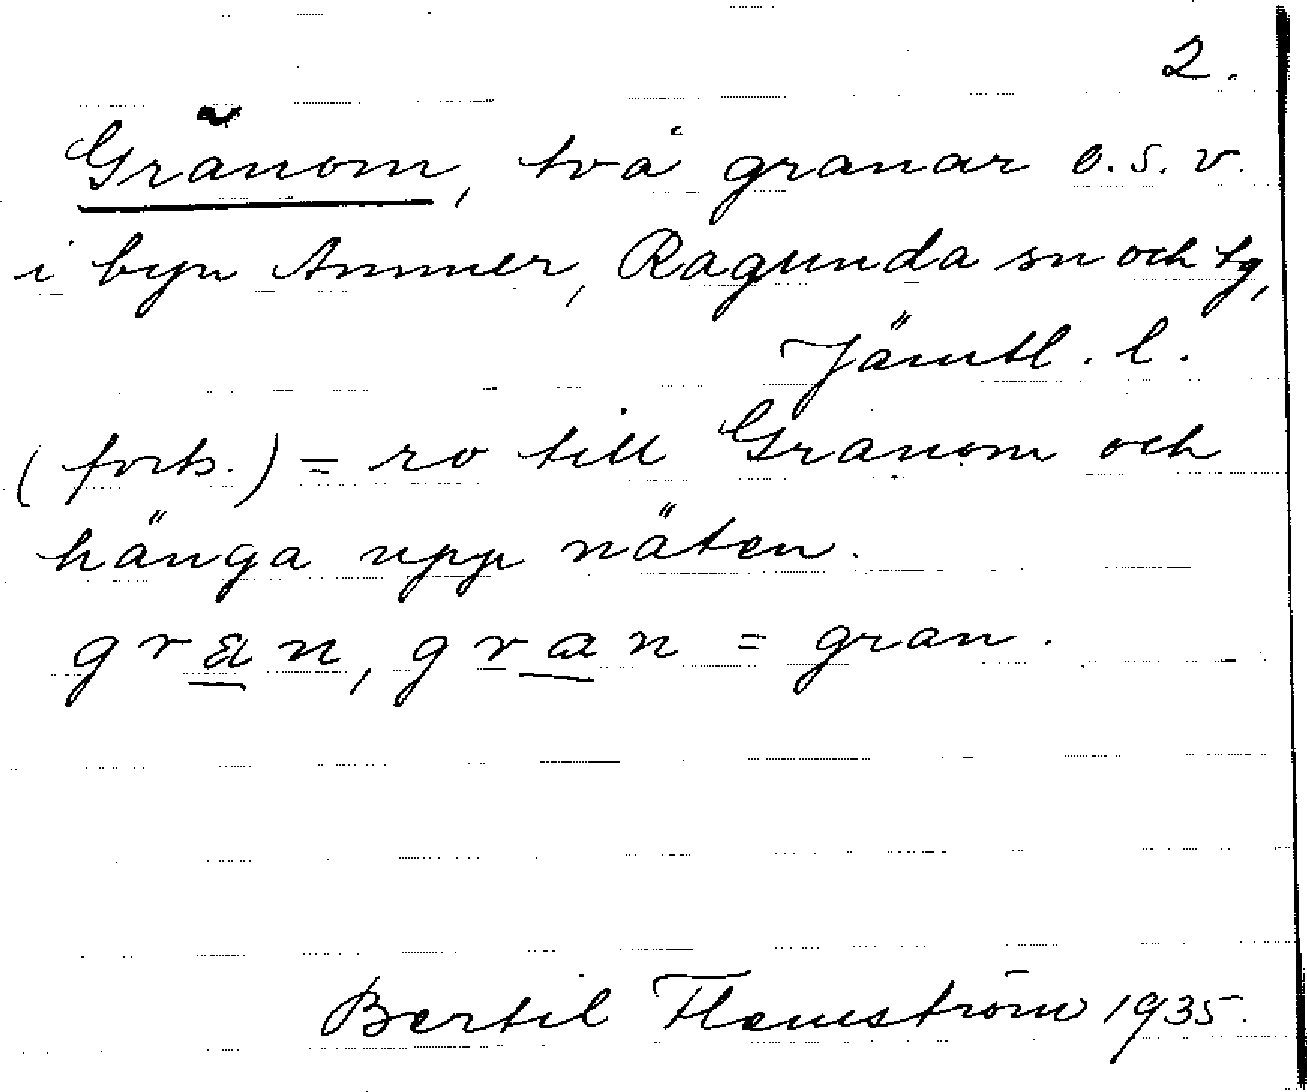 2.
Grãnom, två granar o.s.v.
i byn Ammer, Ragunda sn och tg,
Jämtl. l.
(forts.) = ro till Granom och
hänga upp näten.
gran, gran = gran.
Bertil Flemström 1935.